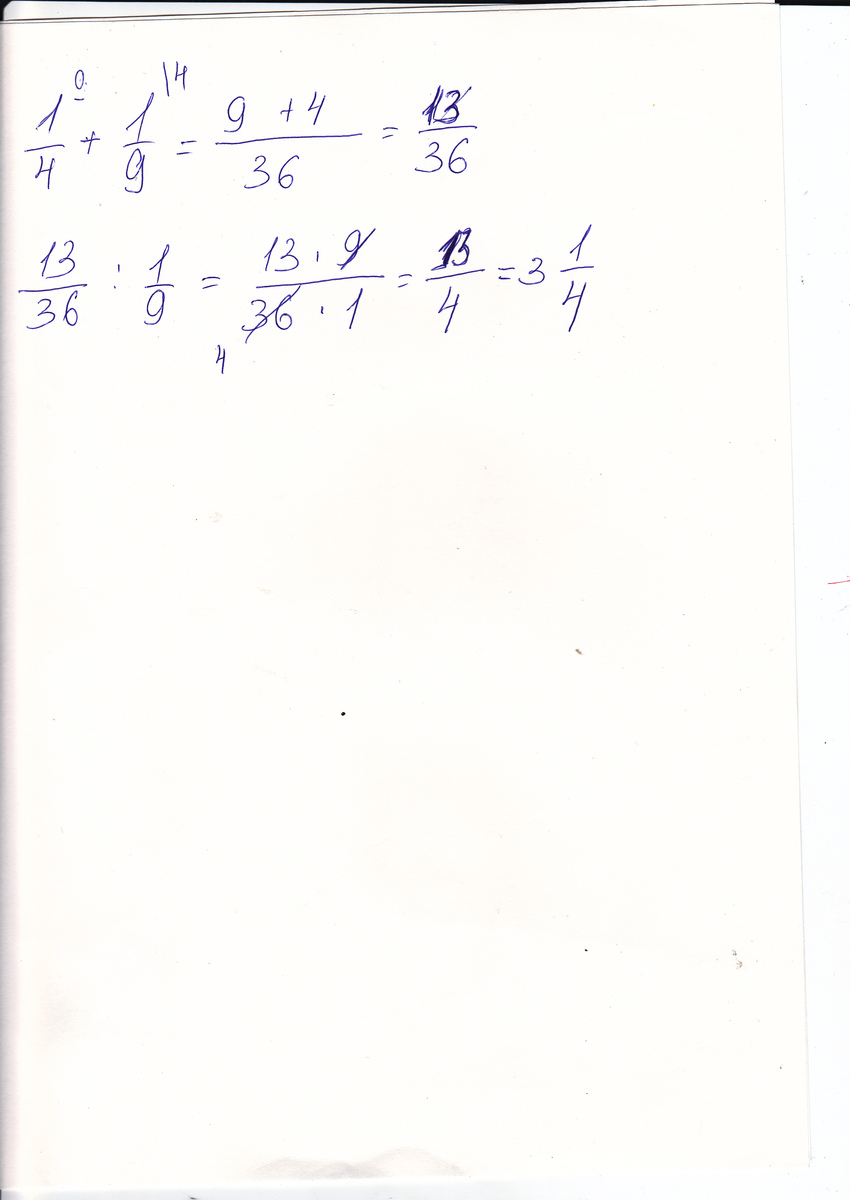 1/4 + 1/9 \4 = 9 + 4/36 = 13/36
13/36 : 1/9 = 13 · 9/36 · 1 = 13/4 = 3 1/4
4